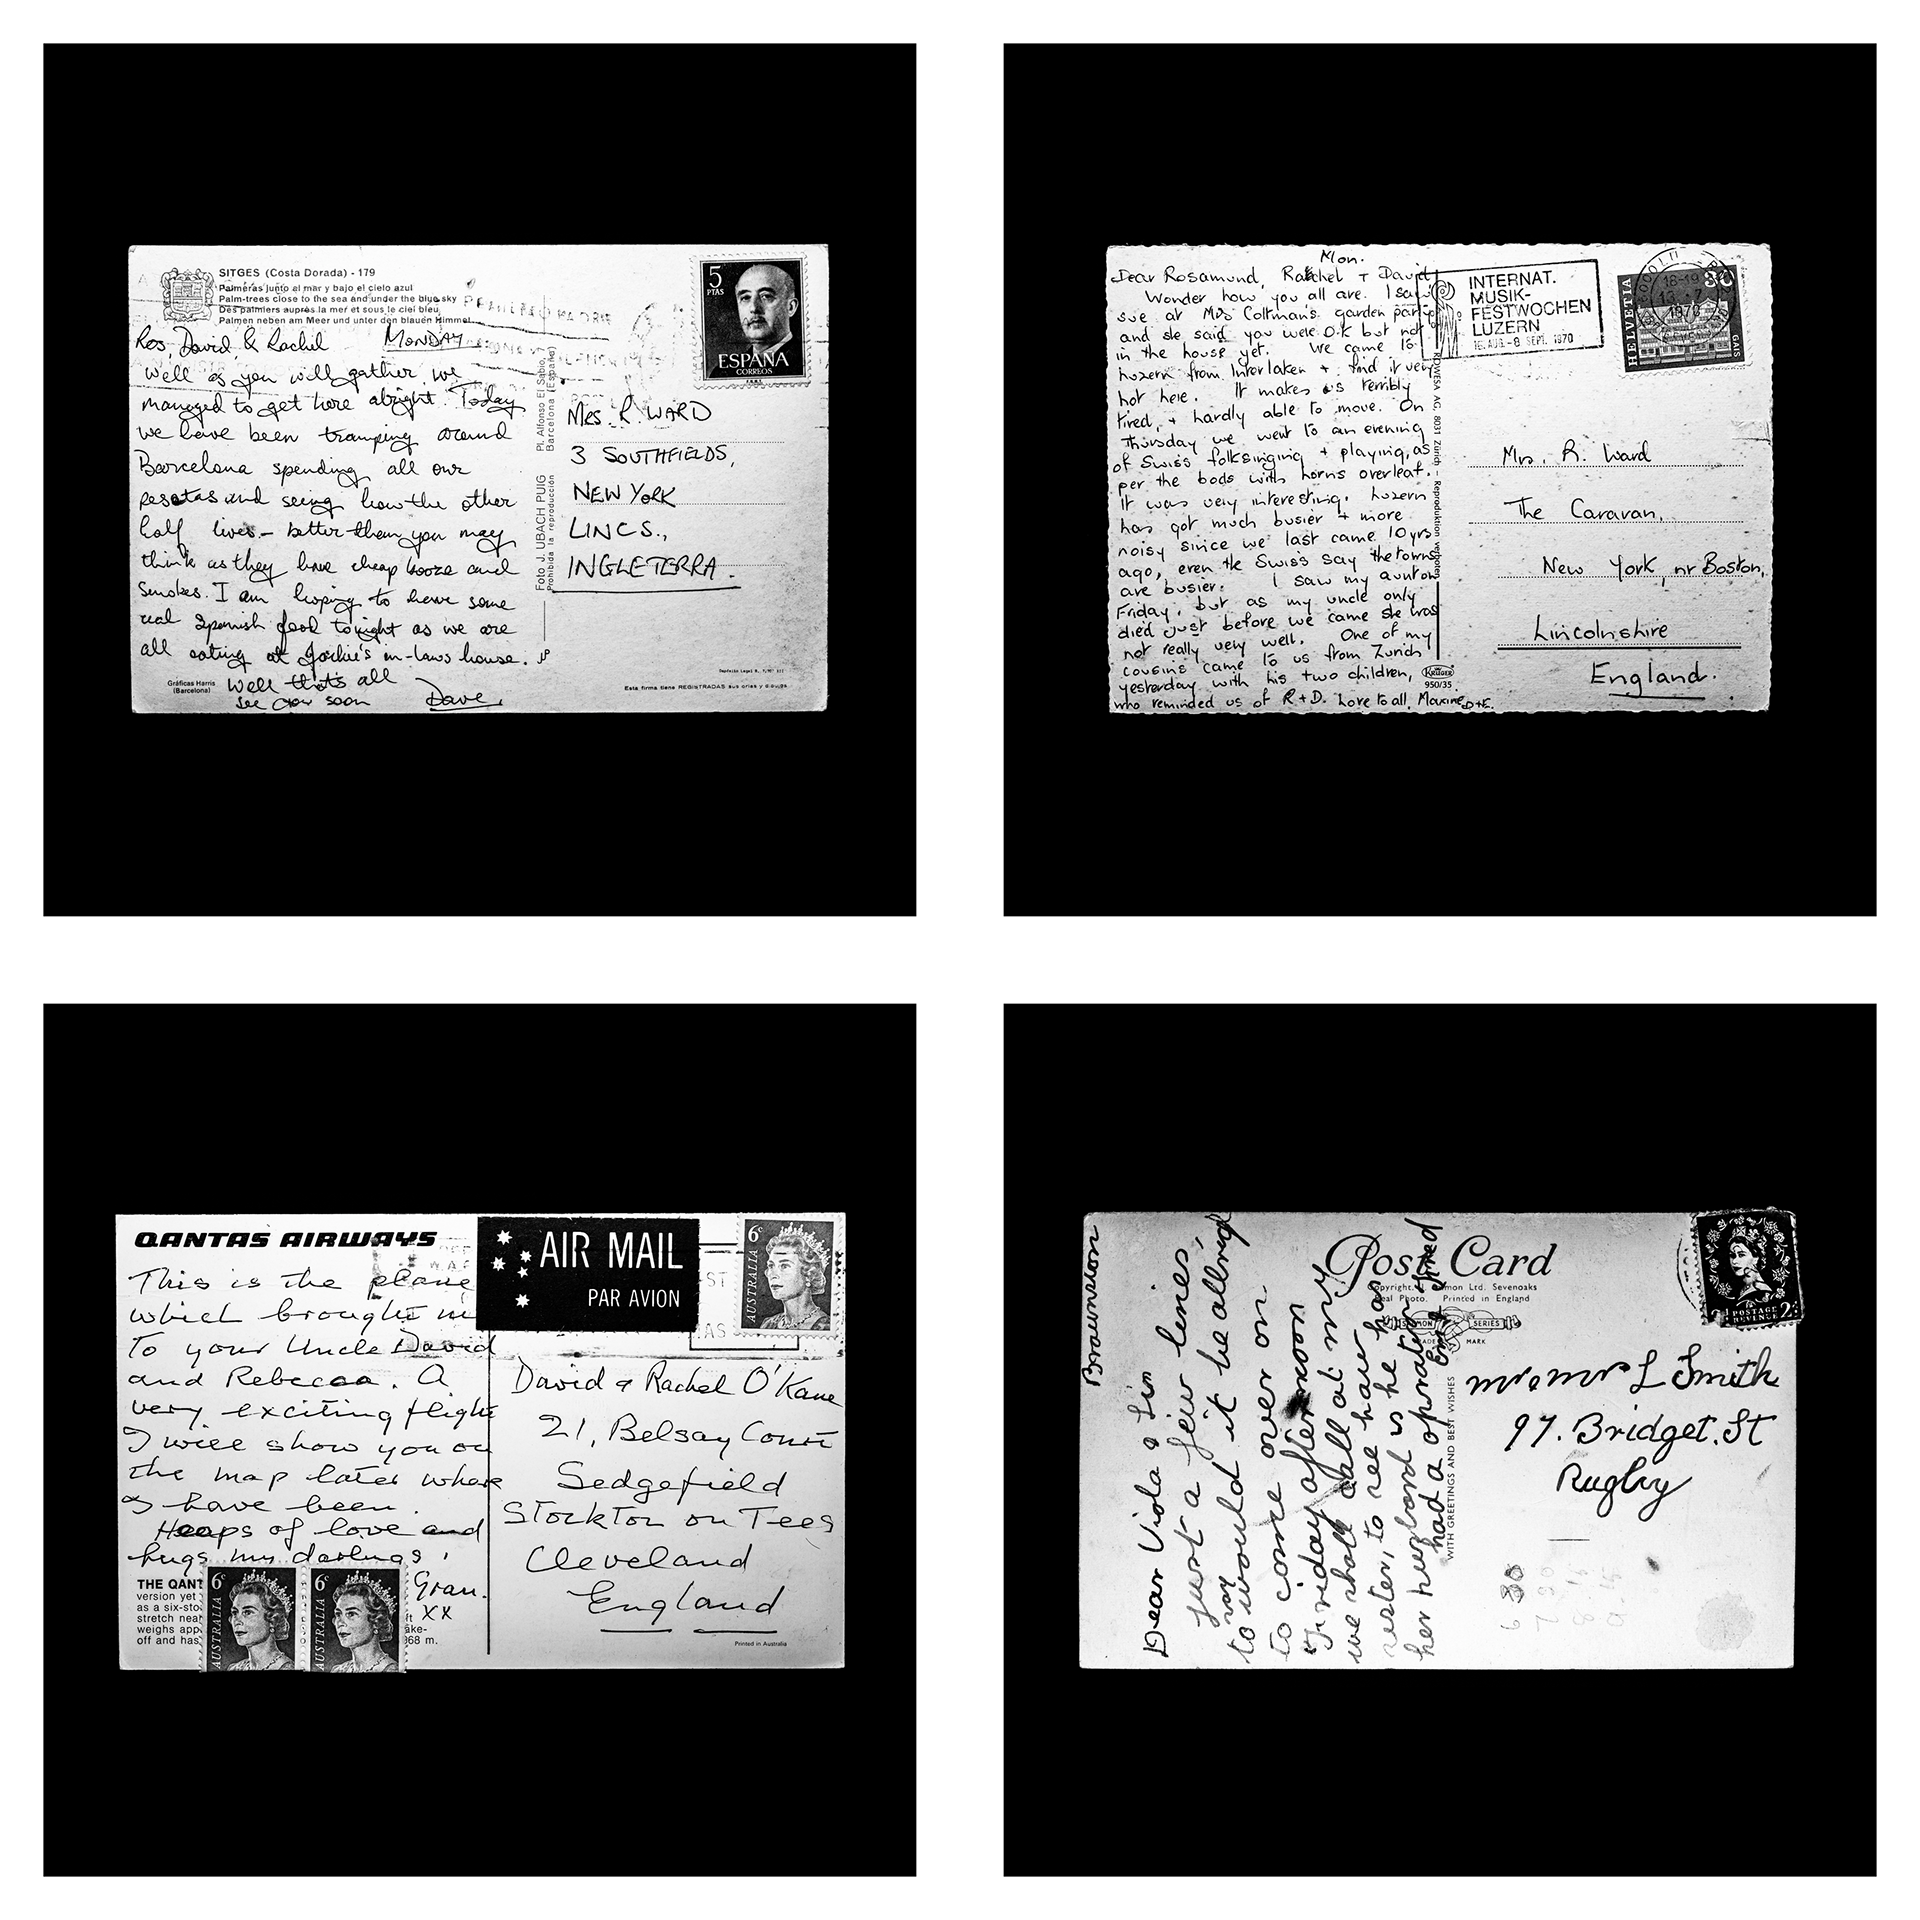 SITGES (Costa Dorada) - 179
Palmeras junto al mar y bajo el cielo azul
Palm-trees close to the sea and under the blue sky
Des palmiers auprès la mer et sous le ciel bleu
Palmen neben am Meer und unter den blauen Himmel
Ros, David & Rachel MONDAY
Well as you will gather we
managed to get here alright. Today
we have been tramping around
Barcelona spending all our
pesetas and seeing how the other
half lives - better than you may
think as they have cheap booze and
smokes. I am hoping to have some
real Spanish food tonight as we are
all eating at in-laws house.
Well that's all
see you soon Dave
Gráficas Harris
(Barcelona)
Foto J. UBACH PUIG Pl. Alfonso El Sabio,
Prohibida la reproducción Barcelona (España)
5
PTAS
ESPAÑA
CORREOS
Mrs. R. WARD
3 SOUTHFIELDS,
NEW YORK
LINCS.,
INGLETERRA.
Mon.
Dear Rosamund, Rachel + David
Wonder how you all are. I saw
sue at Mrs Coltman's garden party
and she said you were O.K but not
in the house yet. We came to
Luzern from Interlaken + find it very
hot here. It makes us terribly
tired, + hardly able to move. On
Thursday we went to an evening
of Swiss folksinging + playing, as
per the bods with horns overleaf.
It was very interesting. Luzern
has got much busier + more
noisy since we last came 10yrs
ago, even the Swiss say the towns
are busier. I saw my aunt on
Friday, but as my uncle only
died just before we came she was
not really very well. One of my
cousins came to us from Zurich
yesterday with his two children,
who reminded us of R + D. Love to all, Maxine, D+E.
KRÜGER
950/35
RDWESA AG, 8031 Zürich - Reproduktion verboten
INTERNAT.
MUSIK-
FESTWOCHEN
LUZERN
15. AUG. - 8 SEPT. 1970
HELVETIA
30
GAIS
18-19
1970
Mrs. R. Ward
The Caravan,
New York, nr Boston,
Lincolnshire
England.
QANTAS AIRWAYS
This is the plane
which brought me
to your Uncle David
and Rebecca. A
very exciting flight
I will show you on
the map later where
I have been.
Heaps of love and
hugs my darlings,
Gran.
XX
THE QANT
version yet
as a six-sto
stretch near
weighs app
off and has
68 m.
AIR MAIL
PAR AVION
6c
AUSTRALIA
6c
AUSTRALIA
6c
AUSTRALIA
David & Rachel O'Kane
21, Belsay Court
Sedgefield
Stockton on Tees
Cleveland
England
Printed in Australia
Dear Viola & Sim
just a few lines,
to would it be allrigt
to come over on
Friday afternoon
we shall call at my
sister, to see how has
her husband is he has
had a operation
Post Card
Salmon Ltd. Sevenoaks
Real Photo. Printed in England
SALMON SERIES
TRADE MARK
WITH GREETINGS AND BEST WISHES
POSTAGE
REVENUE
mr & mrs L Smith
97. Bridget. St
Rugby